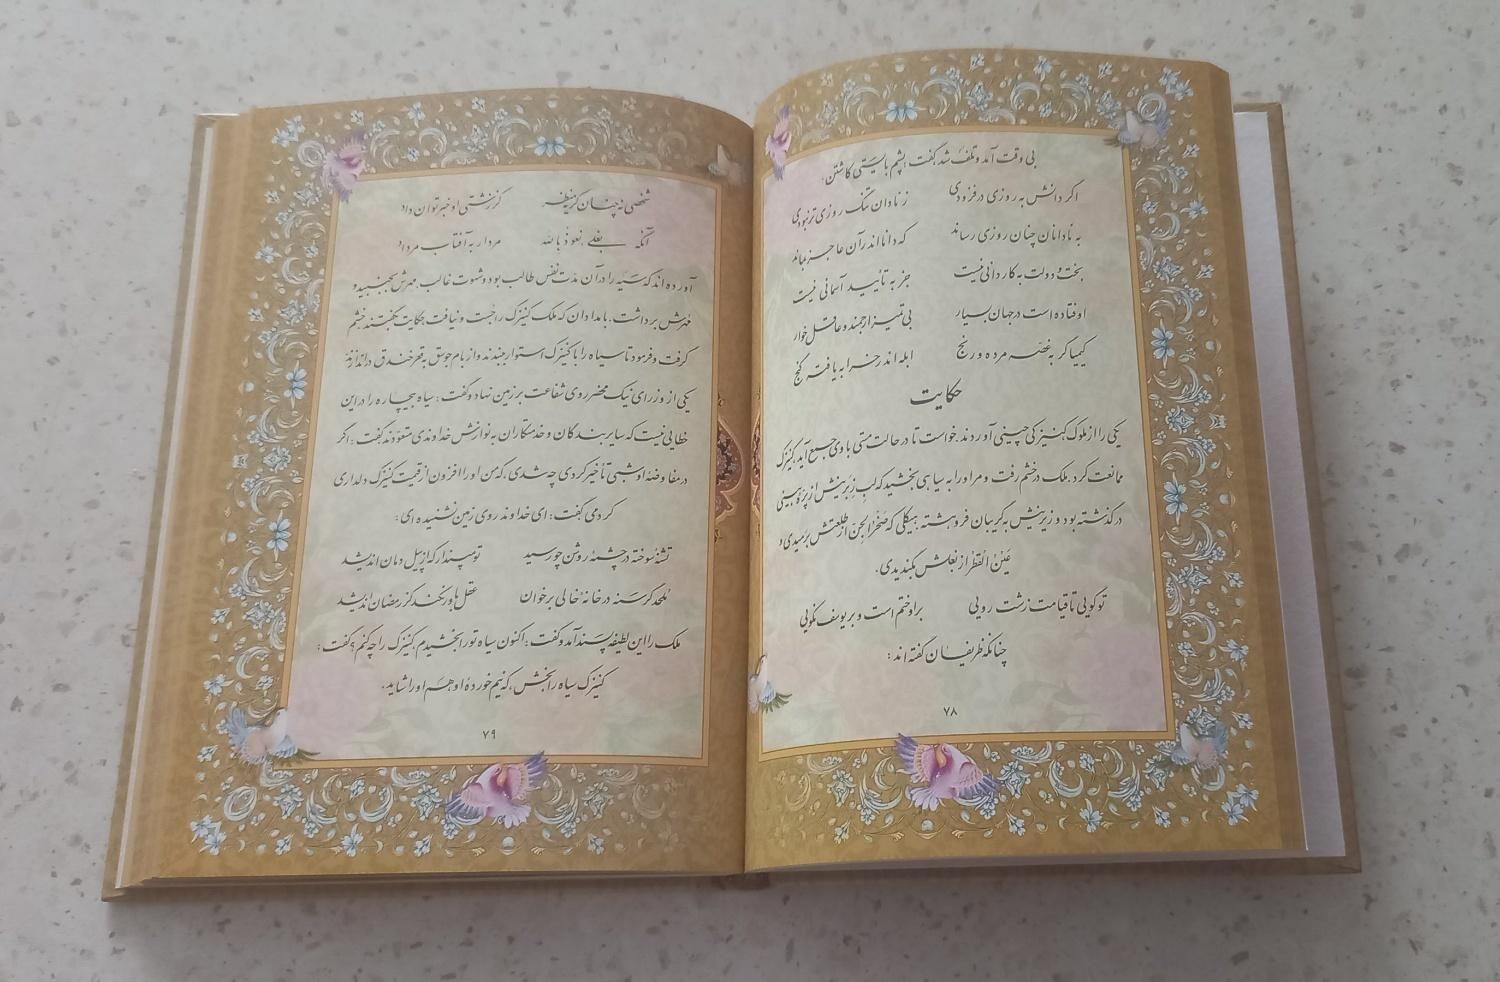 بی وقت آمد و تلف شد. گفت: پشم بایستی کاشتن.
اگر دانش به روزی در فزودی ز نادان تنگ روزی تر نبودی
به نادانان چنان روزی رساند که دانا اندر آن عاجز بماند
بخت و دولت به کاردانی نیست جز به تأیید آسمانی نیست
اوفتاده است در جهان بسیار بی تمیز ارجمند و عاقل خوار
کیمیاگر به غصّه مرده و رنج ابله اندر خرابه یافته گنج
حکایت
یکی را از ملوک کنیزکی چینی آوردند. خواست تا در حالت مستی با وی جمع آید. کنیزک
ممانعت کرد. ملک در خشم رفت و مر او را به سیاهی بخشید که لب زبرینش از پرّهٔ بینی
در گذشته بود و زیرینش به گریبان فروهشته. هیکلی که صَخرُ الجنّ از طلعتش برمیدی و
عَینُ القَطر از بغلش بگندیدی.
تو گویی تا قیامت زشت رویی بر او ختم است و بر یوسف نکویی
چنانکه ظریفان گفته اند:
۷۸
شخصی نه چنان کریه منظر کز زشتی او خبر توان داد
آنگه بغلی نعوذ بالله مردار به آفتاب مرداد
آورده اند که سیَه را در آن مدّت نفس طالب بود و شهوت غالب. مهرش بجنبید و
مُهرش برداشت. بامدادان که ملک کنیزک را جست و نیافت، حکایت گفتند. خشم
گرفت و فرمود تا سیاه را با کنیزک استوار ببندند و از بام جوسق به قعر خندق در اندازند.
یکی از وزرای نیک محضر روی شفاعت بر زمین نهاد و گفت: سیاه بیچاره را در این
خطایی نیست که سایر بندگان و خدمتکاران به نوازش خداوندی متعوّدند. گفت: اگر
در مفاوضهٔ او شبی تأخیر کردی چه شدی، که من او را افزون از قیمت کنیزک دلداری
کردمی. گفت: ای خداوند روی زمین نشنیده ای:
تشنهٔ سوخته در چشمهٔ روشن چو رسید تو مپندار که از پیل دمان اندیشد
مُلحد گرسنه در خانهٔ خالی بر خوان عقل باور نکند کز رمضان اندیشد
ملک را این لطیفه پسند آمد و گفت: اکنون سیاه تو را بخشیدم، کنیزک را چه کنم؟ گفت:
کنیزک سیاه را بخش، که نیم خوردهٔ او هم او را شاید.
۷۹